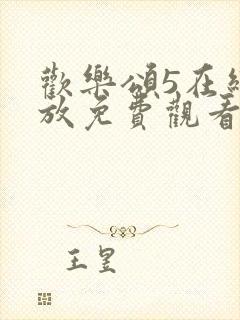 歡樂頌5在
放免費觀看
王昱